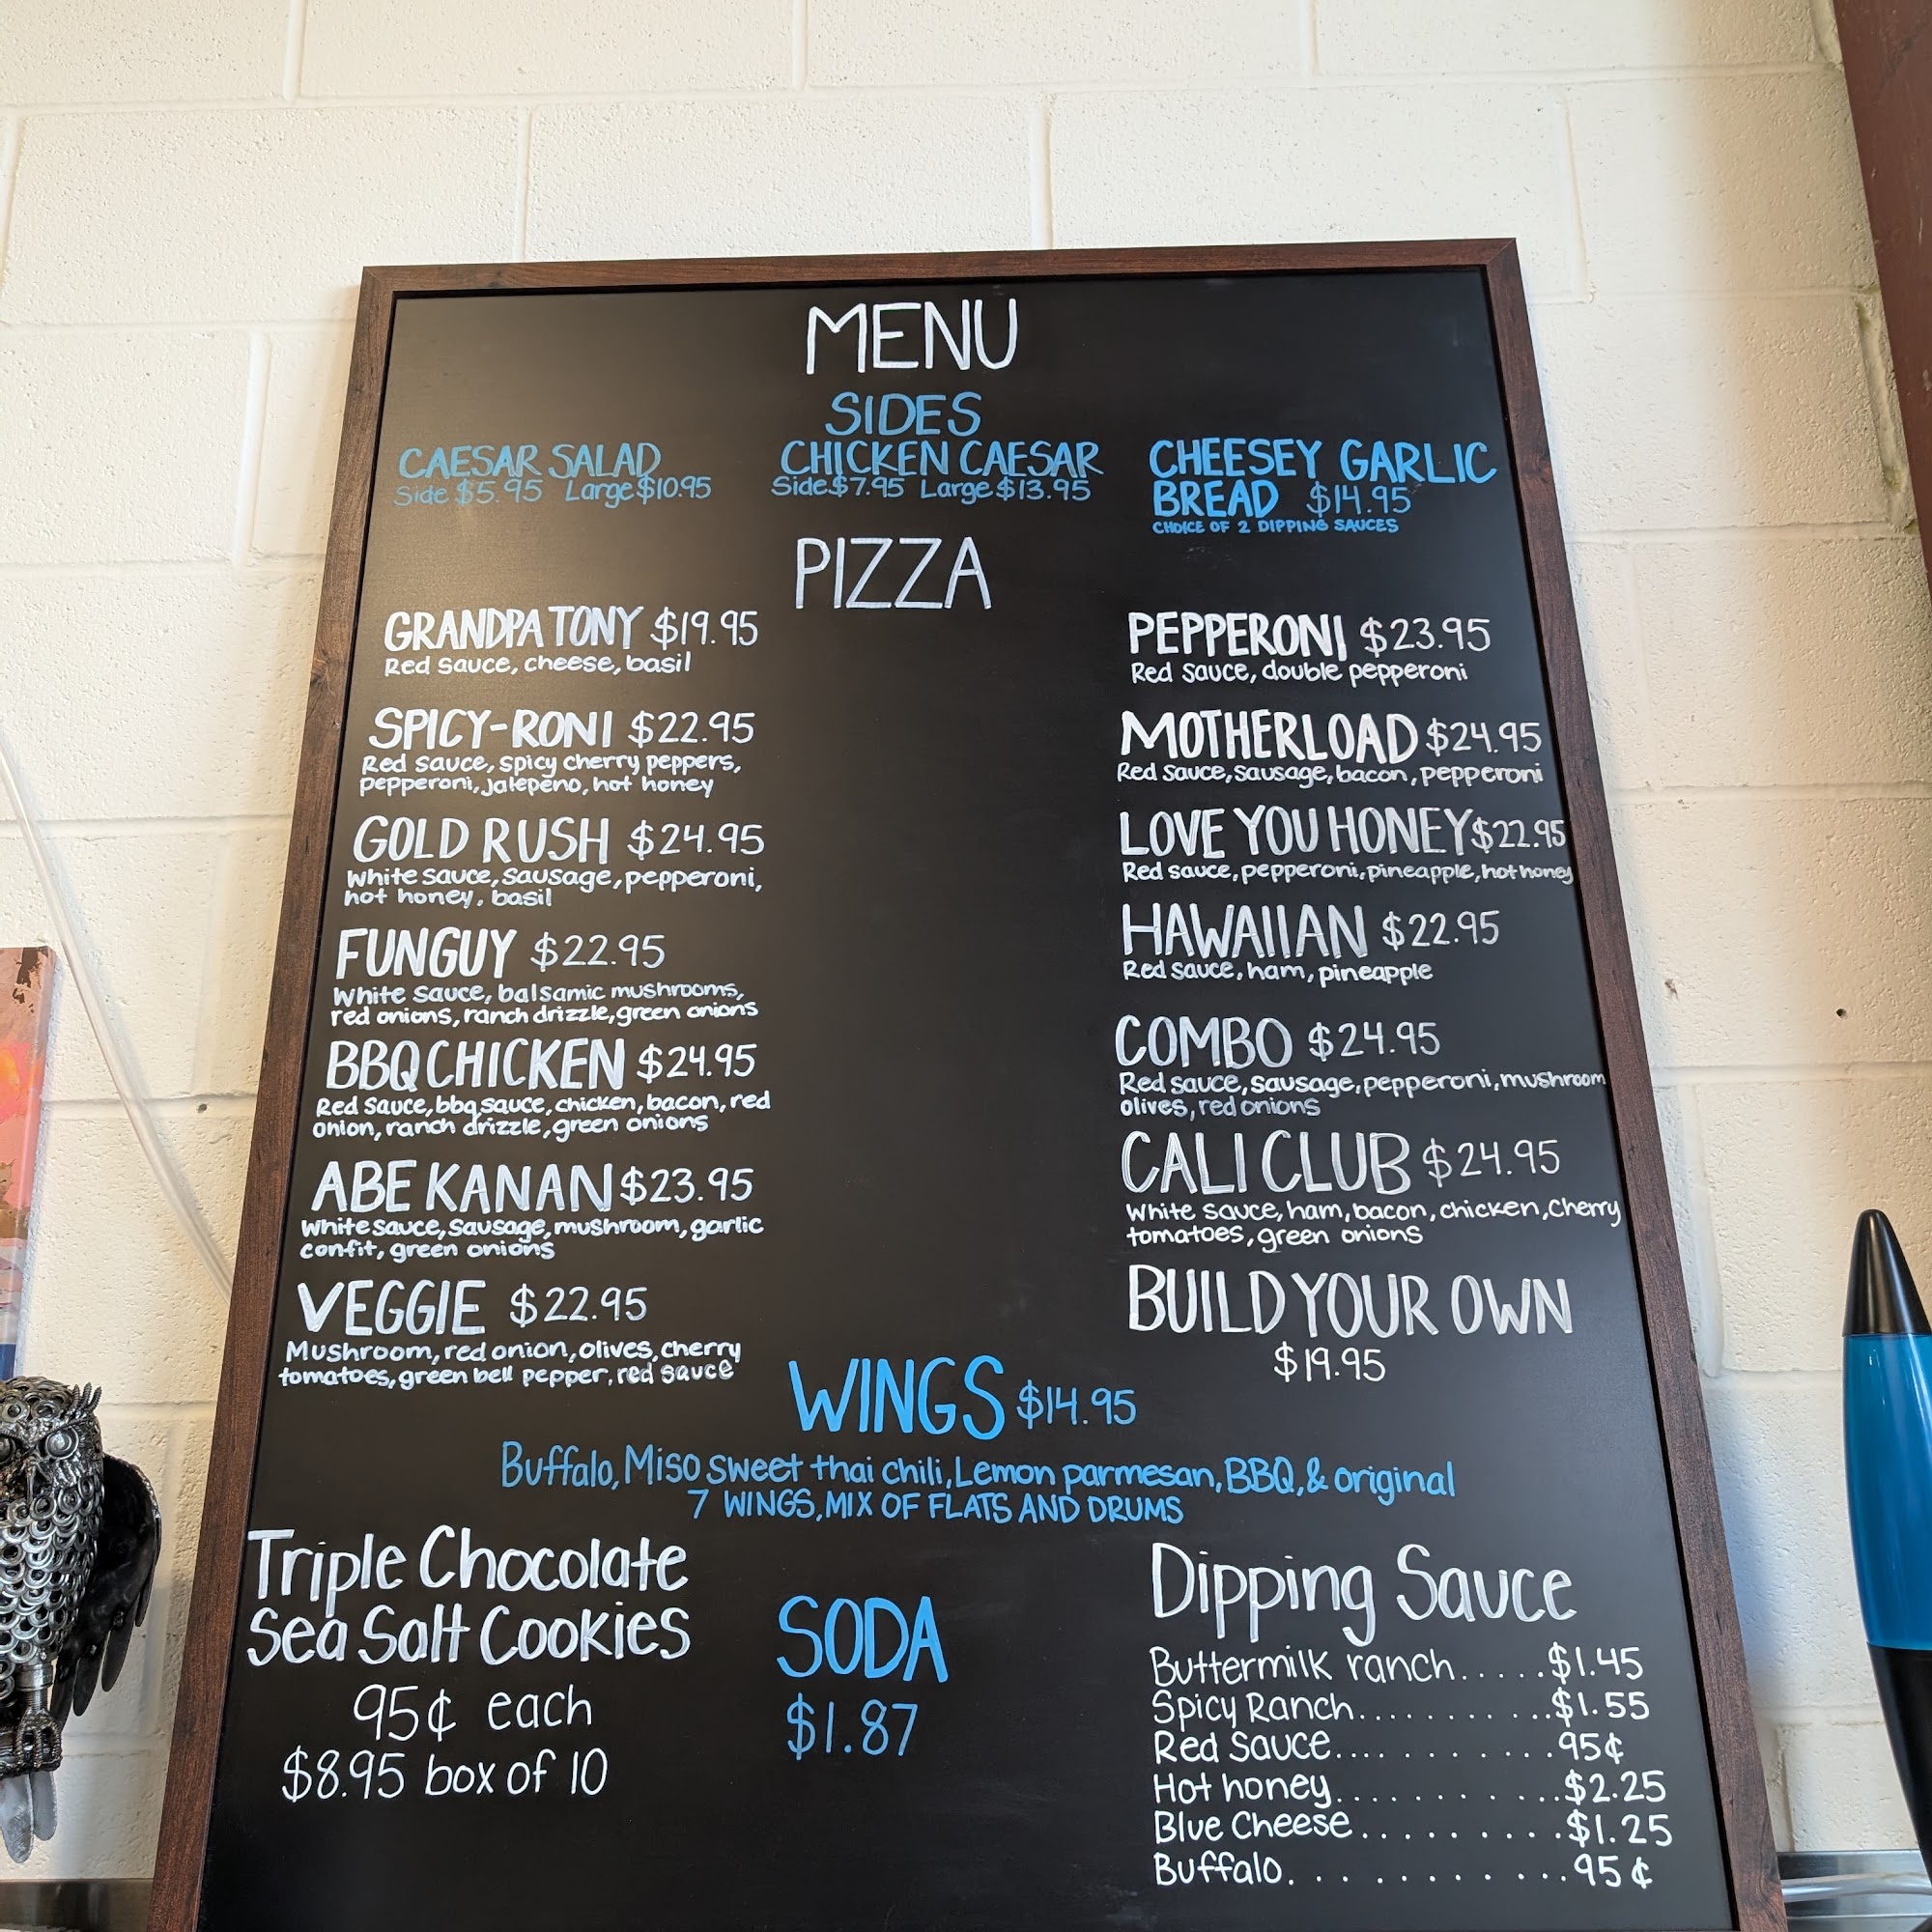 MENU
SIDES
CAESAR SALAD
Side $5.95 Large $10.95
CHICKEN CAESAR
Side $7.95 Large $13.95
CHEESEY GARLIC
BREAD $14.95
CHOICE OF 2 DIPPING SAUCES
PIZZA
GRANDPA TONY $19.95
Red sauce, cheese, basil
SPICY-RONI $22.95
Red sauce, spicy cherry peppers,
pepperoni, jalepeno, hot honey
GOLD RUSH $24.95
White sauce, sausage, pepperoni,
hot honey, basil
FUNGUY $22.95
White sauce, balsamic mushrooms,
red onions, ranch drizzle, green onions
BBQ CHICKEN $24.95
Red sauce, bbq sauce, chicken, bacon, red
onion, ranch drizzle, green onions
ABE KANAN $23.95
White sauce, sausage, mushroom, garlic
confit, green onions
VEGGIE $22.95
Mushroom, red onion, olives, cherry
tomatoes, green bell pepper, red sauce
PEPPERONI $23.95
Red sauce, double pepperoni
MOTHERLOAD $24.95
Red sauce, sausage, bacon, pepperoni
LOVE YOU HONEY $22.95
Red sauce, pepperoni, pineapple, hot honey
HAWAIIAN $22.95
Red sauce, ham, pineapple
COMBO $24.95
Red sauce, sausage, pepperoni, mushroom
olives, red onions
CALI CLUB $24.95
White sauce, ham, bacon, chicken, cherry
tomatoes, green onions
BUILD YOUR OWN
$19.95
WINGS $14.95
Buffalo, Miso sweet thai chili, Lemon parmesan, BBQ, & original
7 WINGS, MIX OF FLATS AND DRUMS
Triple Chocolate
Sea Salt Cookies
95¢ each
$8.95 box of 10
SODA
$1.87
Dipping Sauce
Buttermilk ranch.....$1.45
Spicy Ranch...........$1.55
Red Sauce...........95¢
Hot honey............$2.25
Blue Cheese..........$1.25
Buffalo............95¢